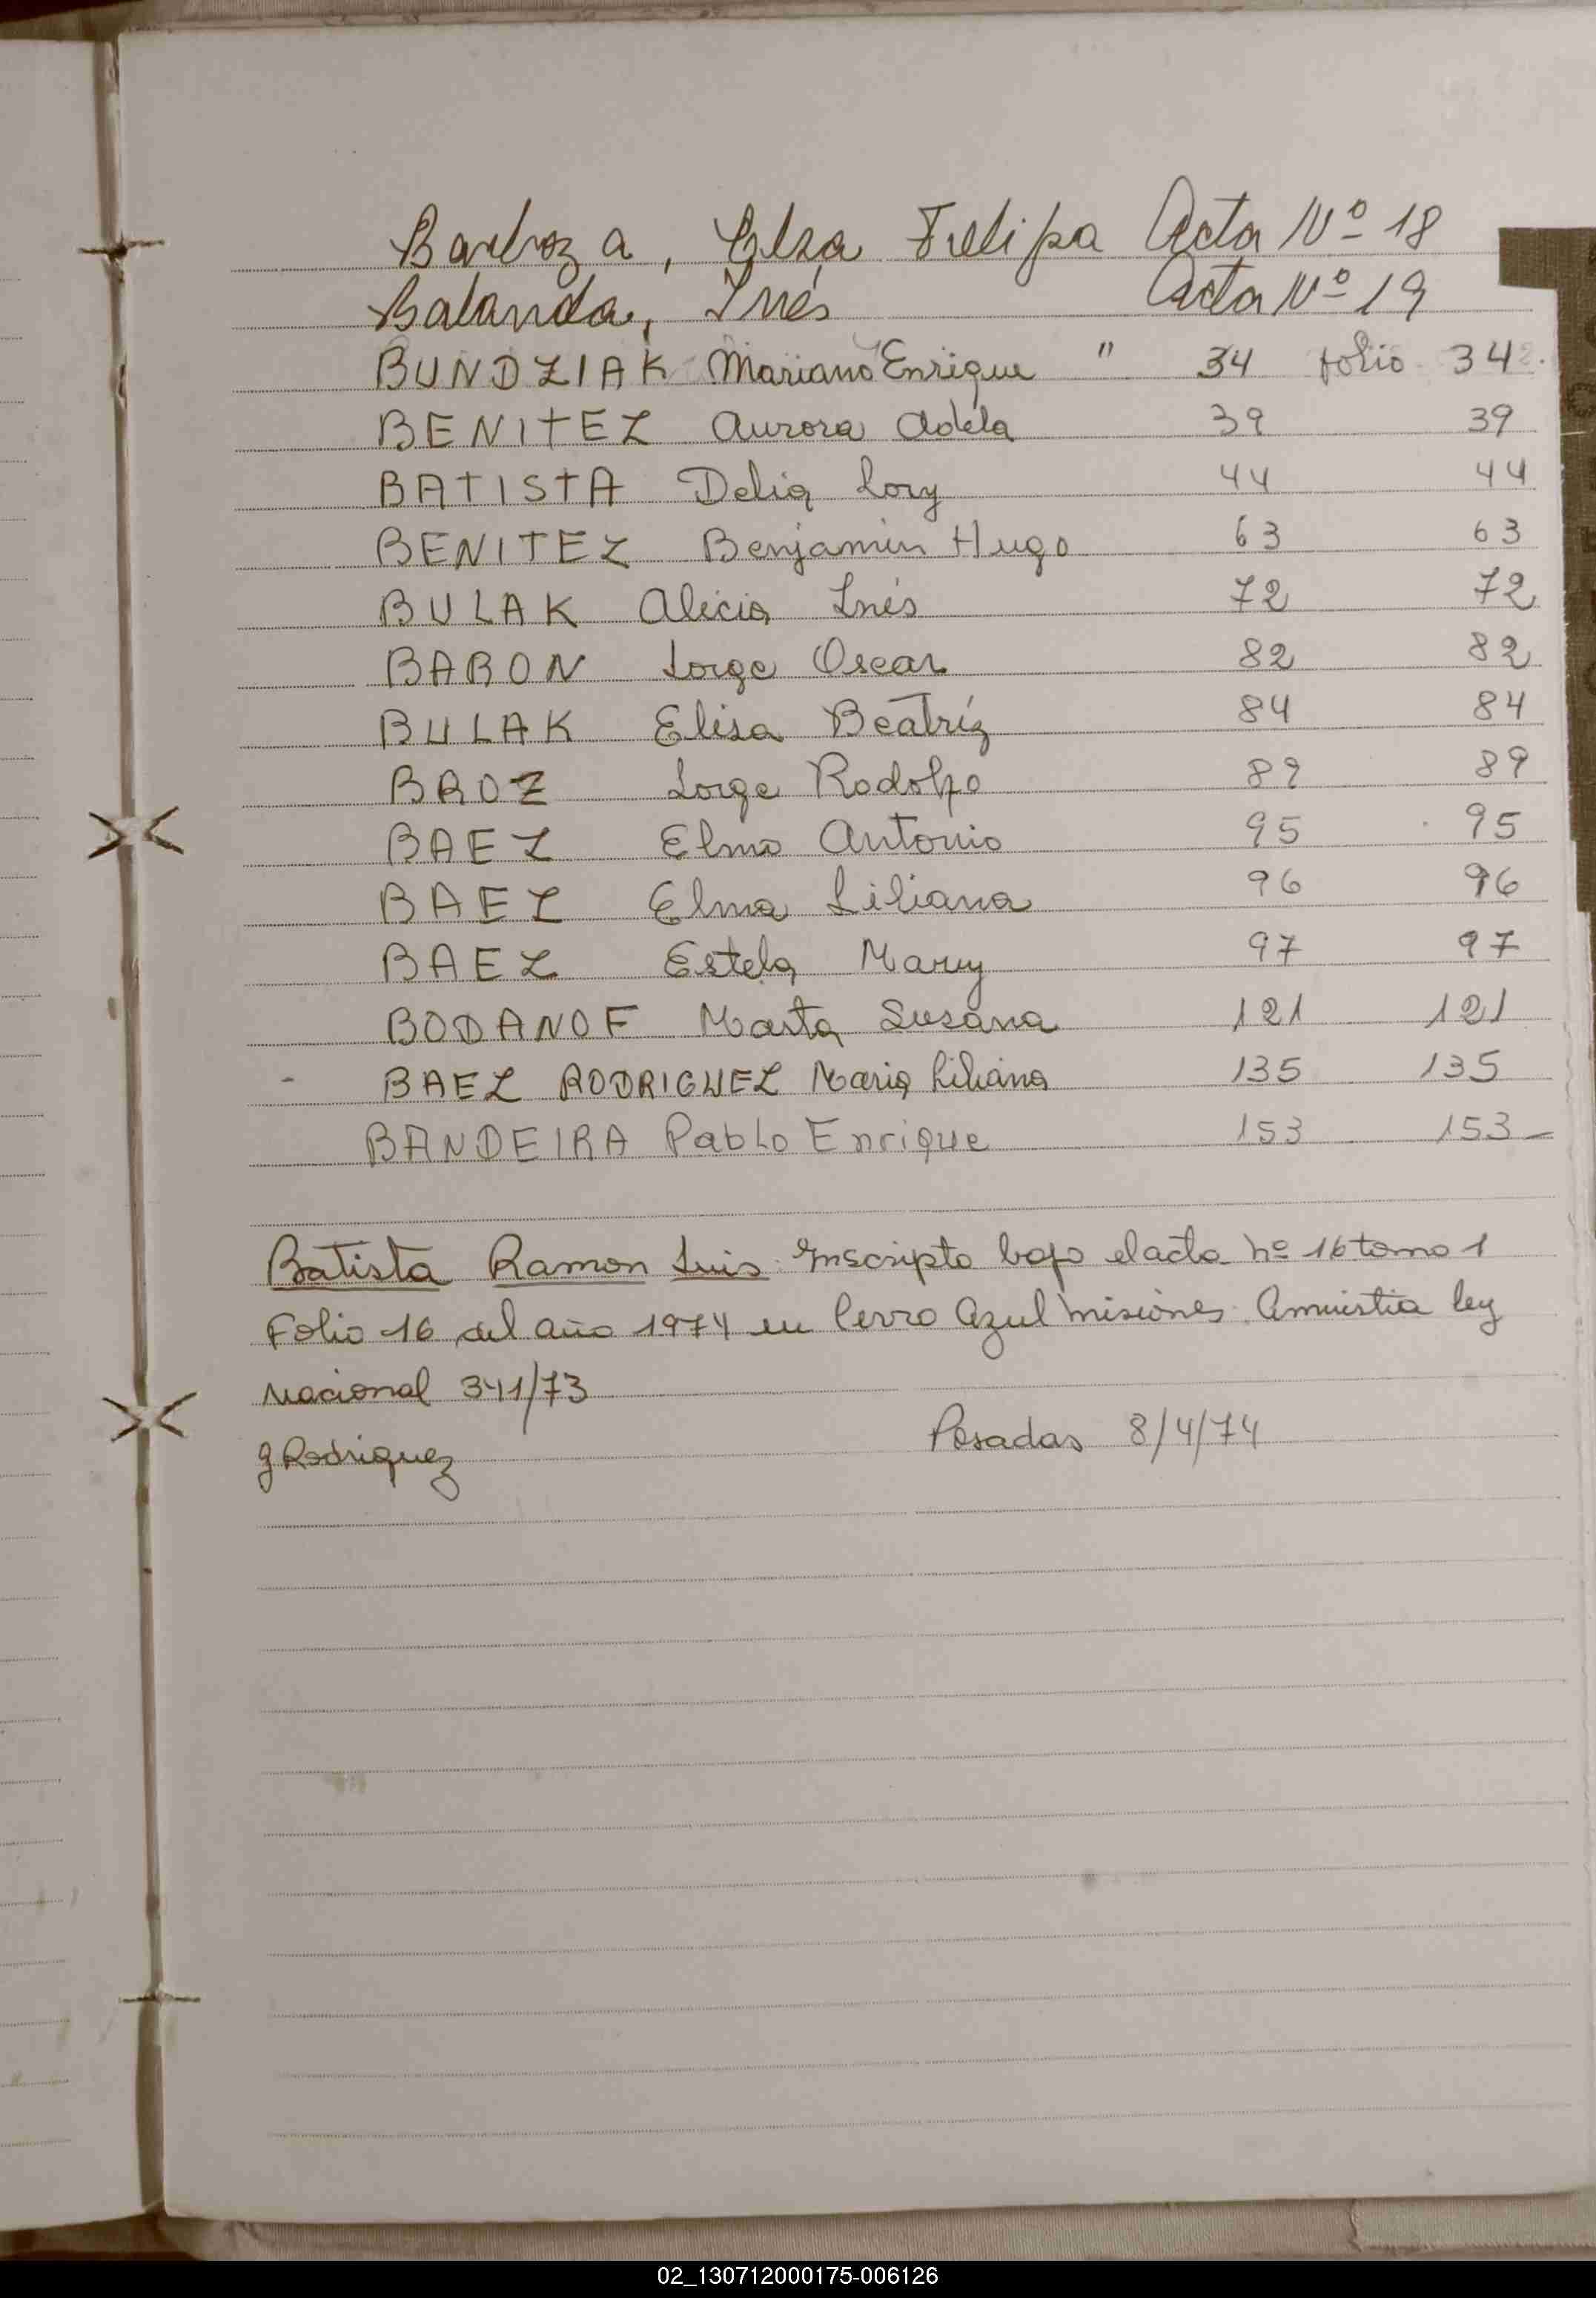 Barboza, Elsa Felipa Acta Nº 18
Balanda, Inés Acta Nº 19
BUNDZIAK Mariano Enrique " 34 folio 34
BENITEZ Aurora Adela 39 39
BATISTA Delia Lory 44 44
BENITEZ Benjamin Hugo 63 63
BULAK Alicia Inés 72 72
BARON Jorge Oscar 82 82
BULAK Elisa Beatríz 84 84
BROZ Jorge Rodolfo 89 89
BAEZ Elmo Antonio 95 95
BAEZ Elma Liliana 96 96
BAEZ Estela Mary 97 97
BODANOF Marta Susana 121 121
- BAEZ RODRIGUEZ Maria Liliana 135 135
BANDEIRA Pablo Enrique 153 153 –
Batista Ramon Luis Inscripto bajo el acta nº 16 tomo 1
Folio 16 del año 1974 en Cerro Azul Misiones. Amnistia ley
Nacional 341/73
Posadas 8/4/74
g Rodriguez
02_130712000175-006126